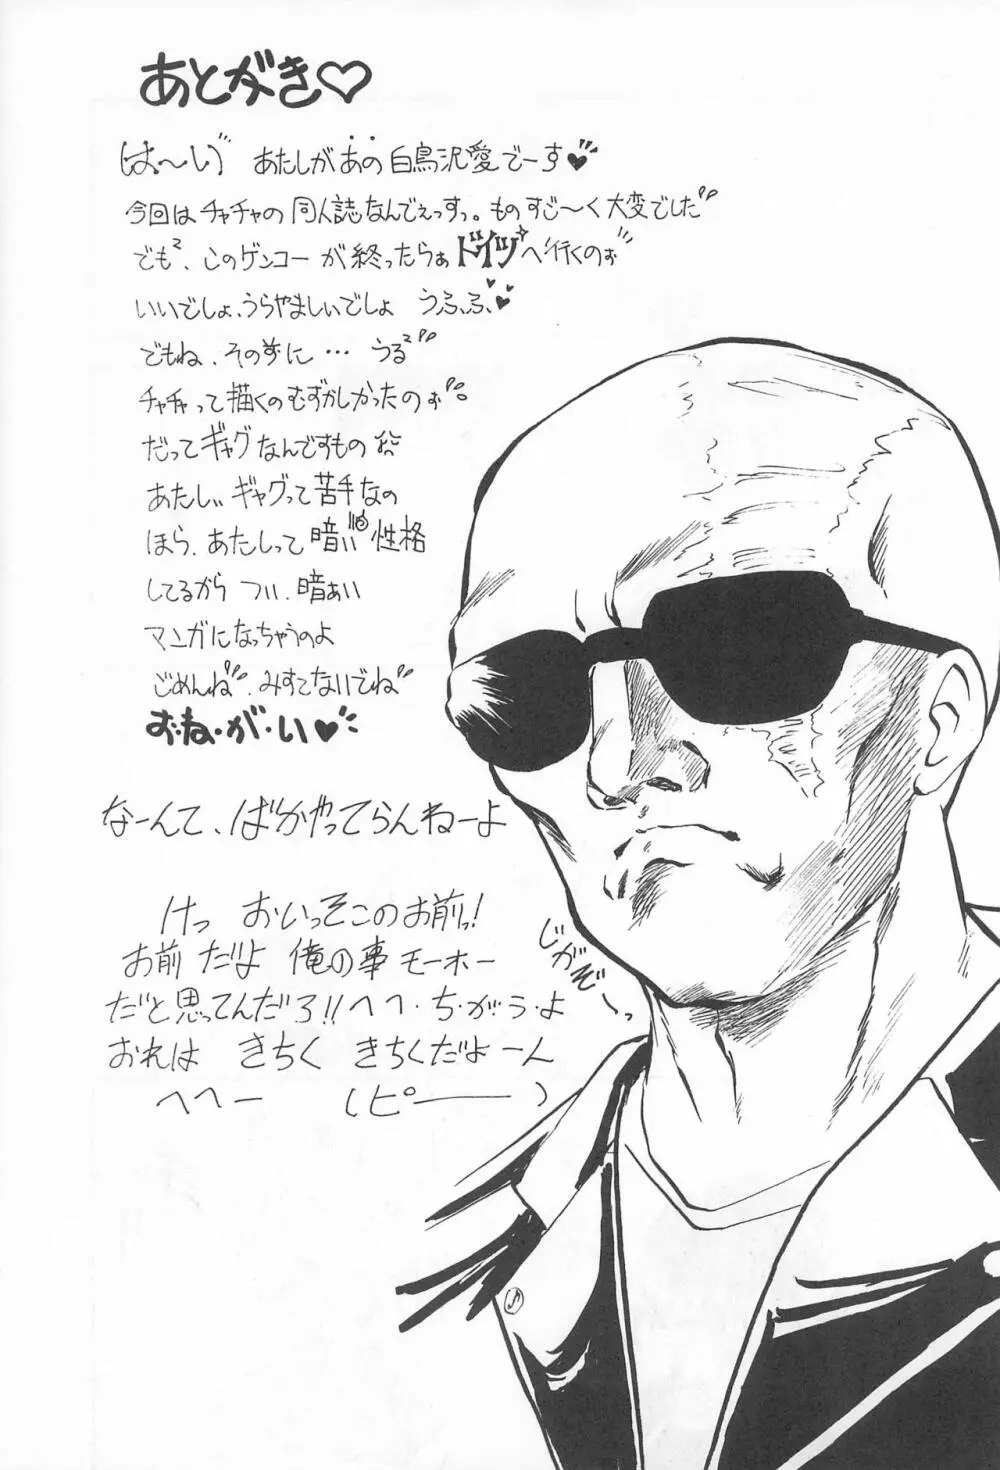 あとがき♡
は〜い゛ あたしがあの白鳥沢愛でーす♥
今回はチャチャの同人誌なんでぇっすっ。ものすご〜く大変でした
でも²、このゲンコーが終ったらぁドイツへ行くのぉ
いいでしょ、うらやましぃでしょ うふふ♥
でもね、その前に… うる²
チャチャって描くのむずかしかったのぉ。
だってギャグなんですもの
あたしぃギャグって苦手なの
ほら、あたしって暗い性格
してるから つい、暗ぁい
マンガになっちゃうのよ
ごめんね、みすてないでね
お・ね・が・い♥
なーんて、ばかやってらんねーよ
けっ おいっそこのお前っ!
お前だよ 俺の事モーホー
だと思ってんだろ!!へへ・ち・が・う・よ
おれは きちく きちくだよーん
へへー (ピ――)
じがぞーっ